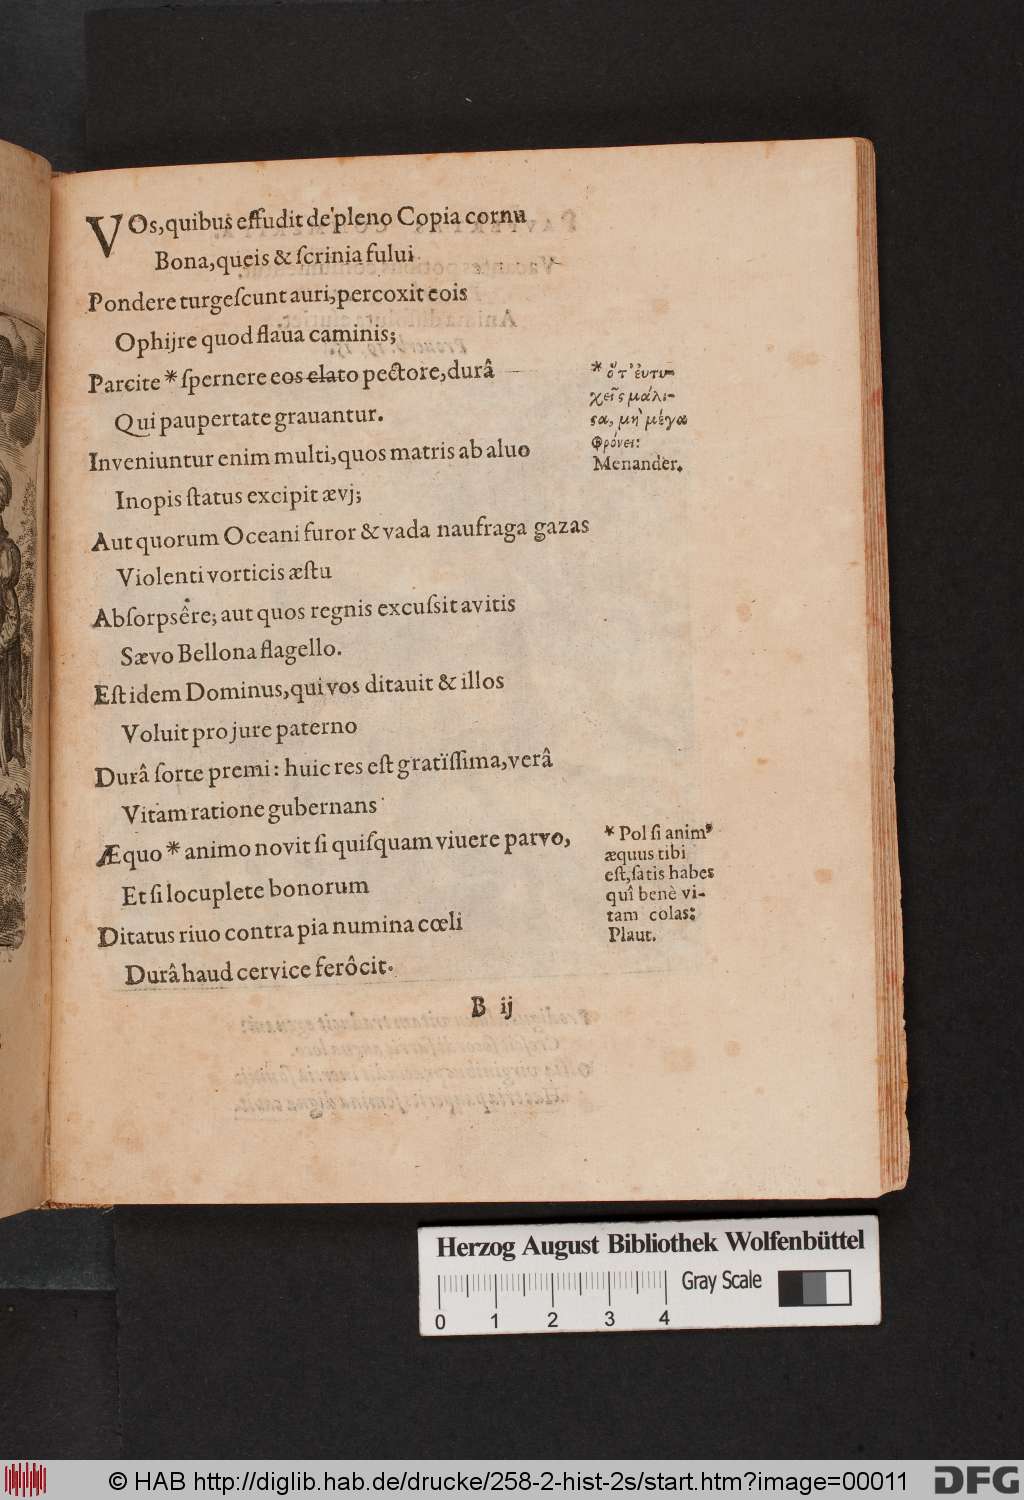 VOs, quibus effudit de pleno Copia cornu
Bona, queis & ſcrinia fului
Pondere turgeſcunt auri, percoxit eois
Ophijre quod flaua caminis;
Parcite * ſpernere eos elato pectore, durâ
Qui paupertate grauantur.
Inveniuntur enim multi, quos matris ab aluo
Inopis ſtatus excipit ævj;
Aut quorum Oceani furor & vada naufraga gazas
Violenti vorticis æſtu
Abſorpsêre; aut quos regnis excuſsit avitis
Sævo Bellona flagello.
Eſt idem Dominus, qui vos ditauit & illos
Voluit pro jure paterno
Durâ ſorte premi: huic res eſt gratiſſima, verâ
Vitam ratione gubernans
Æquo * animo novit ſi quiſquam viuere parvo,
Et ſi locuplete bonorum
Ditatus riuo contra pia numina cœli
Durâ haud cervice ferôcit.
B ij
* ὅτ' ἐυτυ-
χεῖς μάλι-
ϛα, μὴ μέγα
φρόνει:
Menander.
* Pol ſi anim9
æquus tibi
eſt, ſatis habes
quî benè vi-
tam colas:
Plaut.
Herzog August Bibliothek Wolfenbüttel
Gray Scale
0 1 2 3 4
© HAB http://diglib.hab.de/drucke/258-2-hist-2s/start.htm?image=00011
DFG